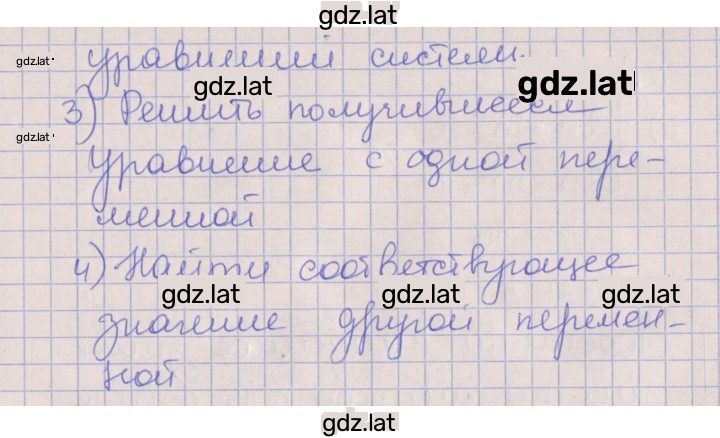 gdz.lat
gdz.lat
уравнений систем.
gdz.lat
gdz.lat
3) Решить получившееся
gdz.lat
уравнение с одной пере-
менной
4) Найти соответствующее
gdz.lat gdz.lat gdz.lat
значение другой перемен-
ной
gdz.lat